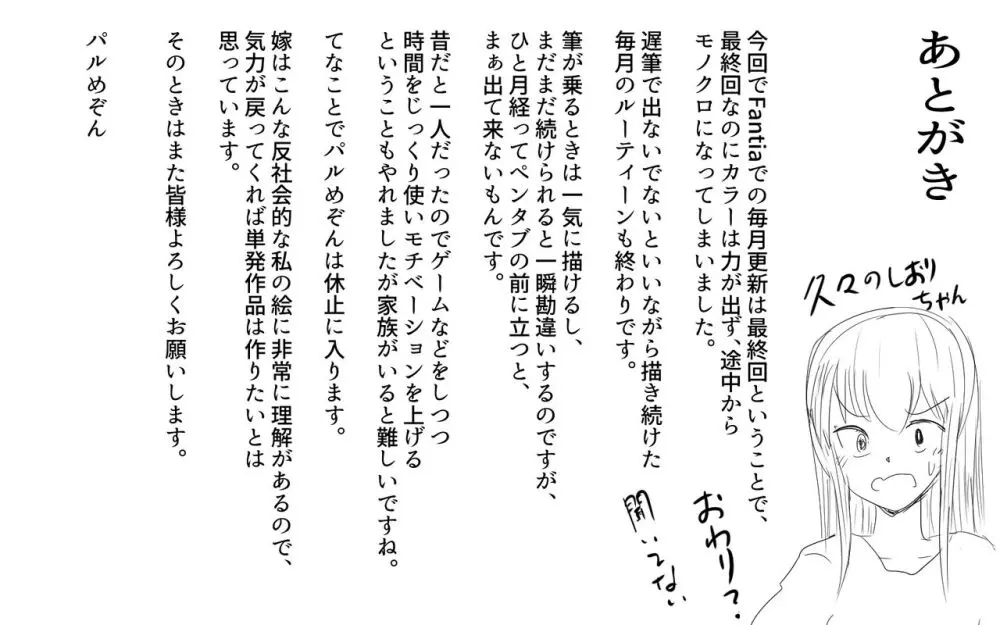 あとがき
今回でFantiaでの毎月更新は最終回ということで、
最終回なのにカラーは力が出ず、途中から
モノクロになってしまいました。
遅筆で出ないでないといいながら描き続けた
毎月のルーティーンも終わりです。
筆が乗るときは一気に描けるし、
まだまだ続けられると一瞬勘違いするのですが、
ひと月経ってペンタブの前に立つと、
まぁ出て来ないもんです。
昔だと一人だったのでゲームなどをしつつ
時間をじっくり使いモチベーションを上げる
ということもやれましたが家族がいると難しいですね。
てなことでパルめぞんは休止に入ります。
嫁はこんな反社会的な私の絵に非常に理解があるので、
気力が戻ってくれば単発作品は作りたいとは
思っています。
そのときはまた皆様よろしくお願いします。
パルめぞん
久々のしおり
ちゃん
おわり?
聞いてない